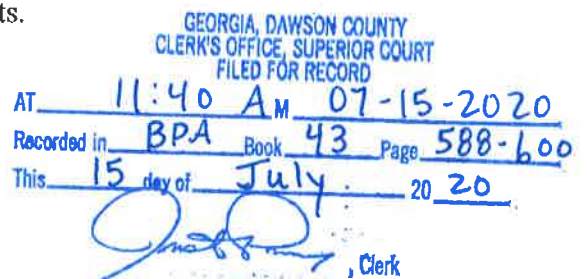 ts.
GEORGIA, DAWSON COUNTY
CLERK'S OFFICE, SUPERIOR COURT
FILED FOR RECORD
AT 11:40 A M 07-15-2020
Recorded in BPA Book 43 Page 588-600
This 15 day of July 20 20
, Clerk